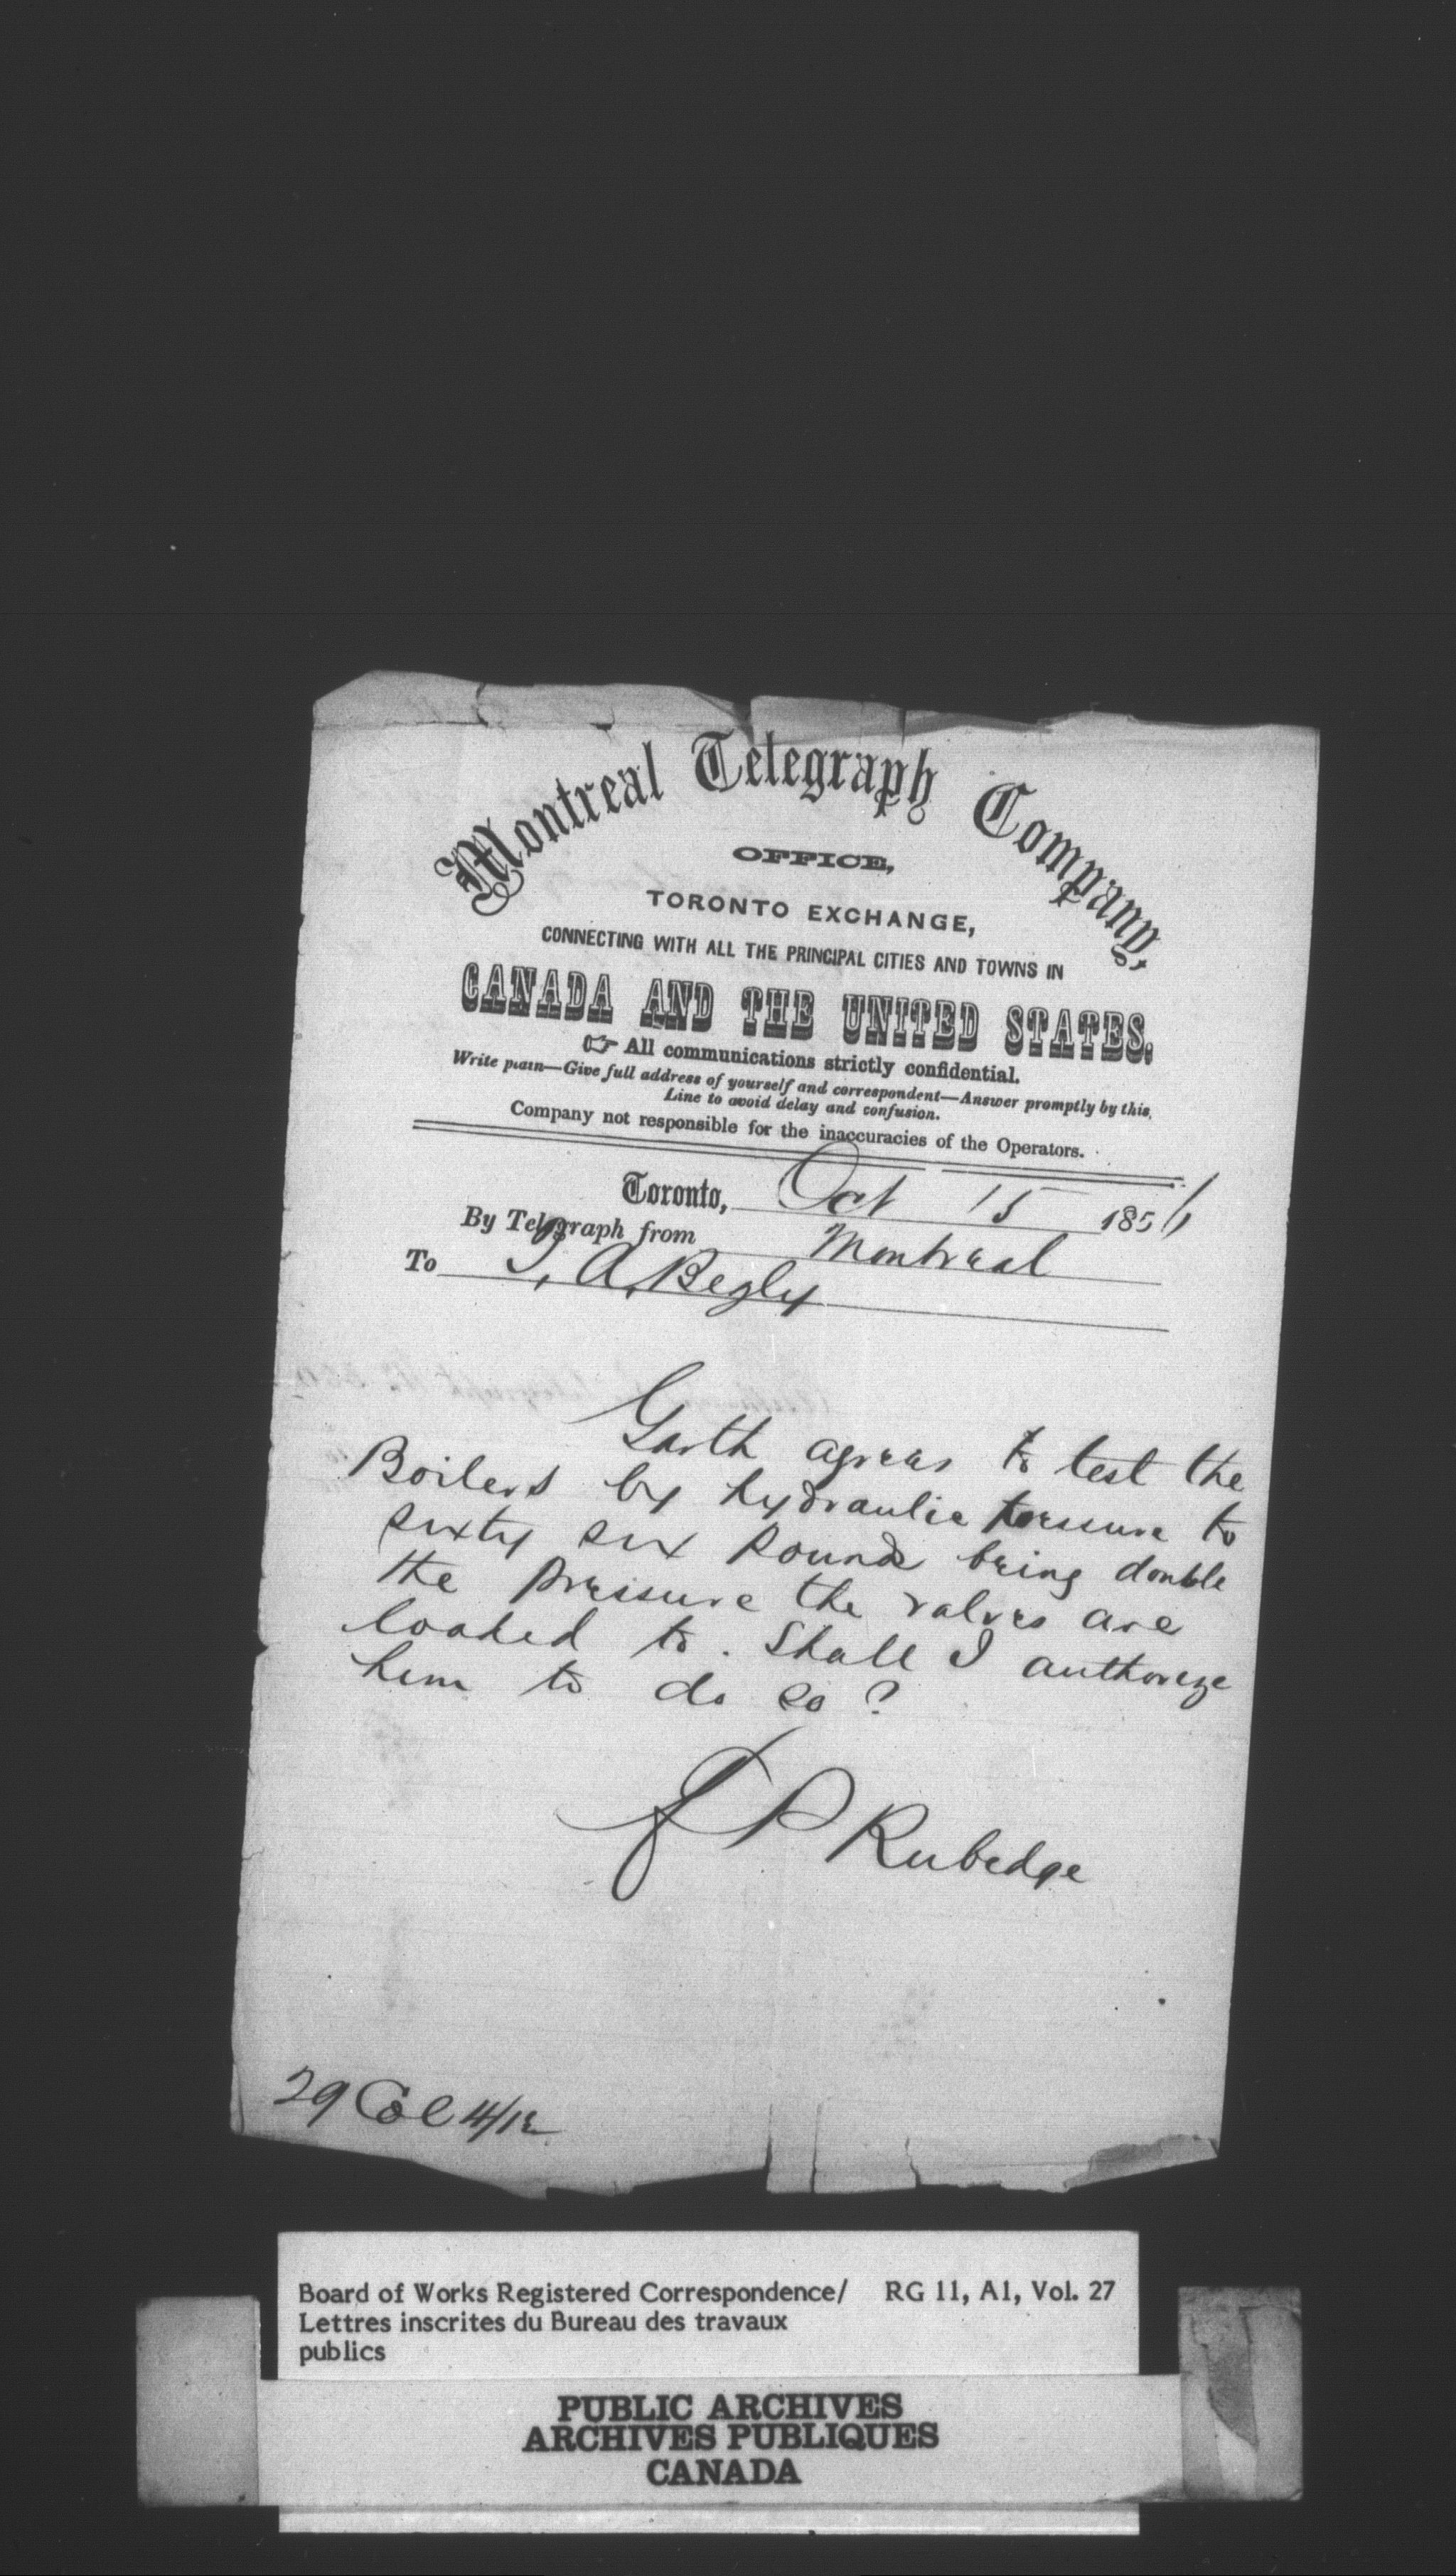 Montreal Telegraph Company,
OFFICE,
TORONTO EXCHANGE,
CONNECTING WITH ALL THE PRINCIPAL CITIES AND TOWNS IN
CANADA AND THE UNITED STATES.
☞ All communications strictly confidential.
Write plain—Give full address of yourself and correspondent—Answer promptly by this
Line to avoid delay and confusion.
Company not responsible for the inaccuracies of the Operators.
Toronto, Oct 15 1856
By Telegraph from Montreal
To T. A. Begly
Garth agrees to test the
Boilers by hydraulic pressure to
sixty six pounds being double
the pressure the valves are
loaded to. Shall I authorize
him to do so?
J P Rubedge
29 Col 4/12
Board of Works Registered Correspondence/ RG 11, A1, Vol. 27
Lettres inscrites du Bureau des travaux
publics
PUBLIC ARCHIVES
ARCHIVES PUBLIQUES
CANADA